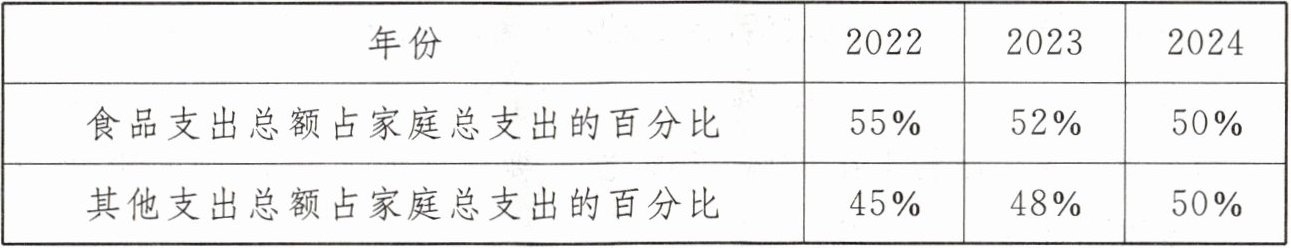 年份 2022 2023 2024
食品支出总额占家庭总支出的百分比 55% 52% 50%
其他支出总额占家庭总支出的百分比 45% 48% 50%